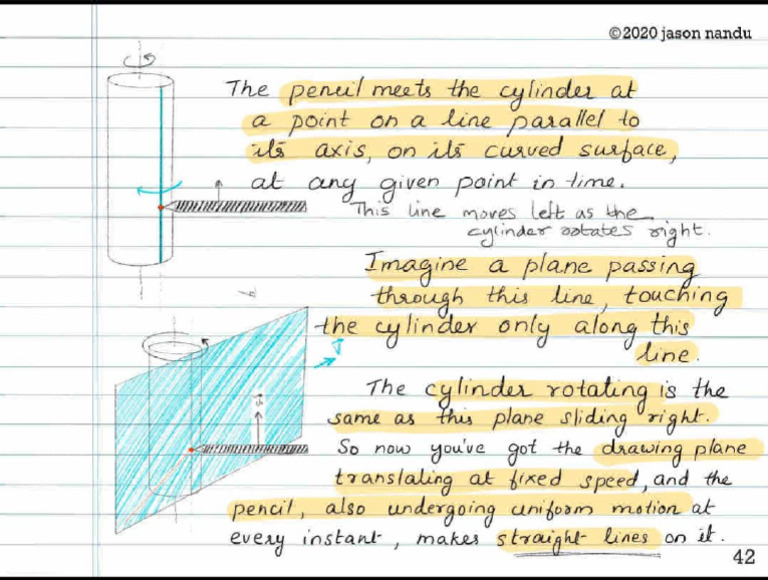 ©2020 jason nandu
The pencil meets the cylinder at
a point on a line parallel to
its axis, on its curved surface,
at any given point in time.
This line moves left as the
cylinder rotates right.
Imagine a plane passing
through this line, touching
the cylinder only along this
line.
The cylinder rotating is the
same as this plane sliding right.
So now you've got the drawing plane
translating at fixed speed, and the
pencil, also undergoing uniform motion at
every instant, makes straight lines on it.
42